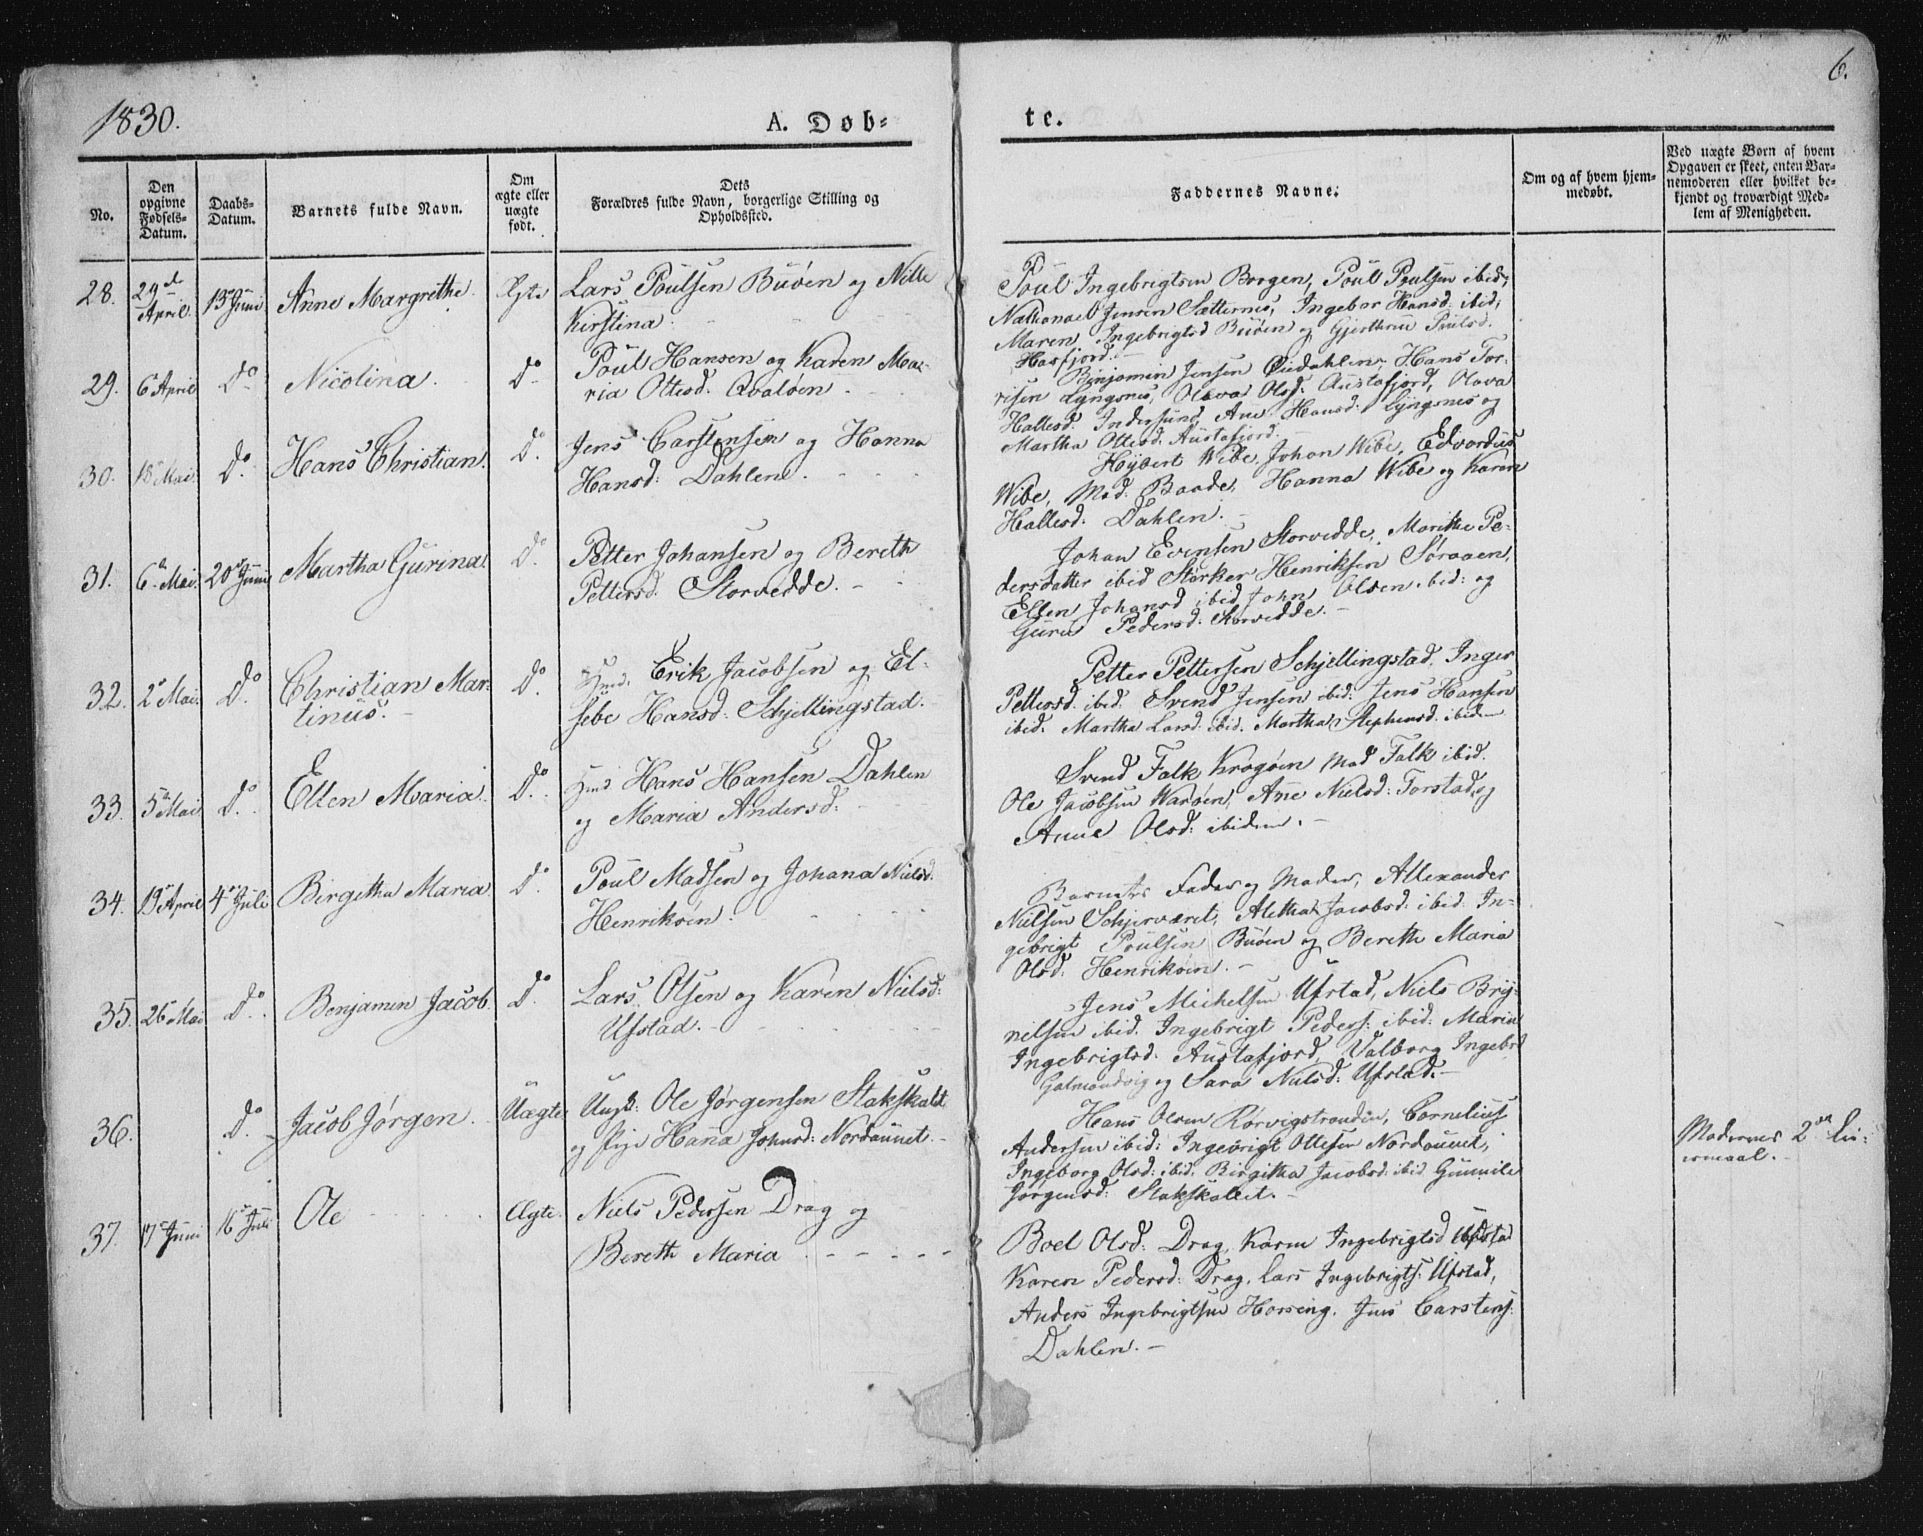 1830.
A. Døb-
te.
6.
No.
Den opgivne Fødsels-Datum.
Daabs-Datum.
Barnets fulde Navn.
Om ægte eller uægte født.
Dets
Forældres fulde Navn, borgerlige Stilling og
Opholdssted.
Faddernes Navne.
Om og af hvem hjem-
medøbt.
Ved uægte Børn af hvem
Opgaven er skeet, enten Bar-
nemoderen eller hvilket be-
kjendt og troværdigt Med-
lem af Menigheden.
28. 29de April 13 Juni Anne Margrethe. Ægte Lars Poulsen Buöen og Nille
Kirstina.
Poul Ingebrigtsen Borgen, Poul Poulsen ibid;
Nathanael Jensen Sætternes, Ingebor Hansd: ibid;
Maren Ingebrigtsd Buöen og Gjerthrue Poulsd.
Hasfjord.
29. 6 April Do Nicolina. Do Poul Hansen og Karen Ma-
ria Ottesd. Qvaløen.
Benjamin Jensen Oudahlen, Hans Tor-
risen Lyngsnes, Olava Olsd: Austafjord, Olava
Hallesd. Indersund, Ane Hansd: Lyngsnes og
Martha Ottesd. Austafjord.
30. 18 Mai Do Hans Christian. Do Jens Carstensen og Hanna
Hansd: Dahlen.
Hybert Wibe, Johan Wibe, Edvardus
Wibe, Mad: Baade, Hanna Wibe og Karen
Hallesd. Dahlen.
31. 6 Mai. 20 Juni Martha Gurina Do Petter Johansen og Bereth
Pettersd. Storvedde.
Johan Evensen Storvedde, Marithe Pe-
dersdatter ibid Størker Henriksen Søraaen,
Ellen Johansd ibid John Olsen ibid: og
Guru Pedersd. Storvedde.
32. 2 Mai. Do Christian Mar-
tinus. Do Hmd. Erik Jacobsen og El-
sebe Hansd: Schjellingstad.
Petter Pettersen Schjellingstad, Inger
Pettersd. ibid. Svend Jensen ibid: Jens Hansen
ibid. Martha Larsd. ibid. Martha Stephensd. ibidem
33. 5 Mai Do Ellen Maria. Do Hmd Hans Hansen Dahlen
og Maria Andersd:
Svend Falk Krogöen Mad Falk ibid.
Ole Jacobsen Waröen, Ane Nielsd: Torstad, og
Anne Olsd: ibidem.
34. 19 April 4 Juli Birgitha Maria Do Poul Madsen og Johana Nielsd.
Henriköen.
Barnets Fader og Moder, Allexander
Nielsen Schjerværet, Aletha Jacobsd: ibid. In-
gebrigt Poulsen Buöen og Bereth Maria
Olsd. Henriköen.
35. 26 Mai Do Benjamin Jacob. Do Lars Olsen og Karen Nielsd:
Ufstad.
Jens Michelsen Ufstad, Niels Bry-
nelsen ibid. Ingebrigt Peders: ibid: Maria
Ingebrigtsd. Austafjord, Valborg Ingebrd
og Sara Nielsd: Ufstad.
36. Do Jacob Jörgen. Uægte Ungk: Ole Jørgensen Stakskalet
og Pige Hana Johnsd: Nordaunet.
Hans Olsen Rörvigstranden, Cornelius
Andersen ibid: Ingebrigt Ottesen Nordaunet,
Ingeborg Olsd: ibid. Birgitha Jacobsd. ibid Gunnile
Jørgensd: Stakskallet.
Moderens 2det Lei-
ermaal.
37. 17 Juni 16 Juli Ole Ægte. Niels Pedersen Drag og
Bereth Maria
Boel Olsd: Drag, Karen Ingebrigtsd Ufstad
Karen Pedersd: Drag, Lars Ingebrigts: Ufstad,
Anders Ingebrigtsen Horseng, Jens Carstens:
Dahlen.